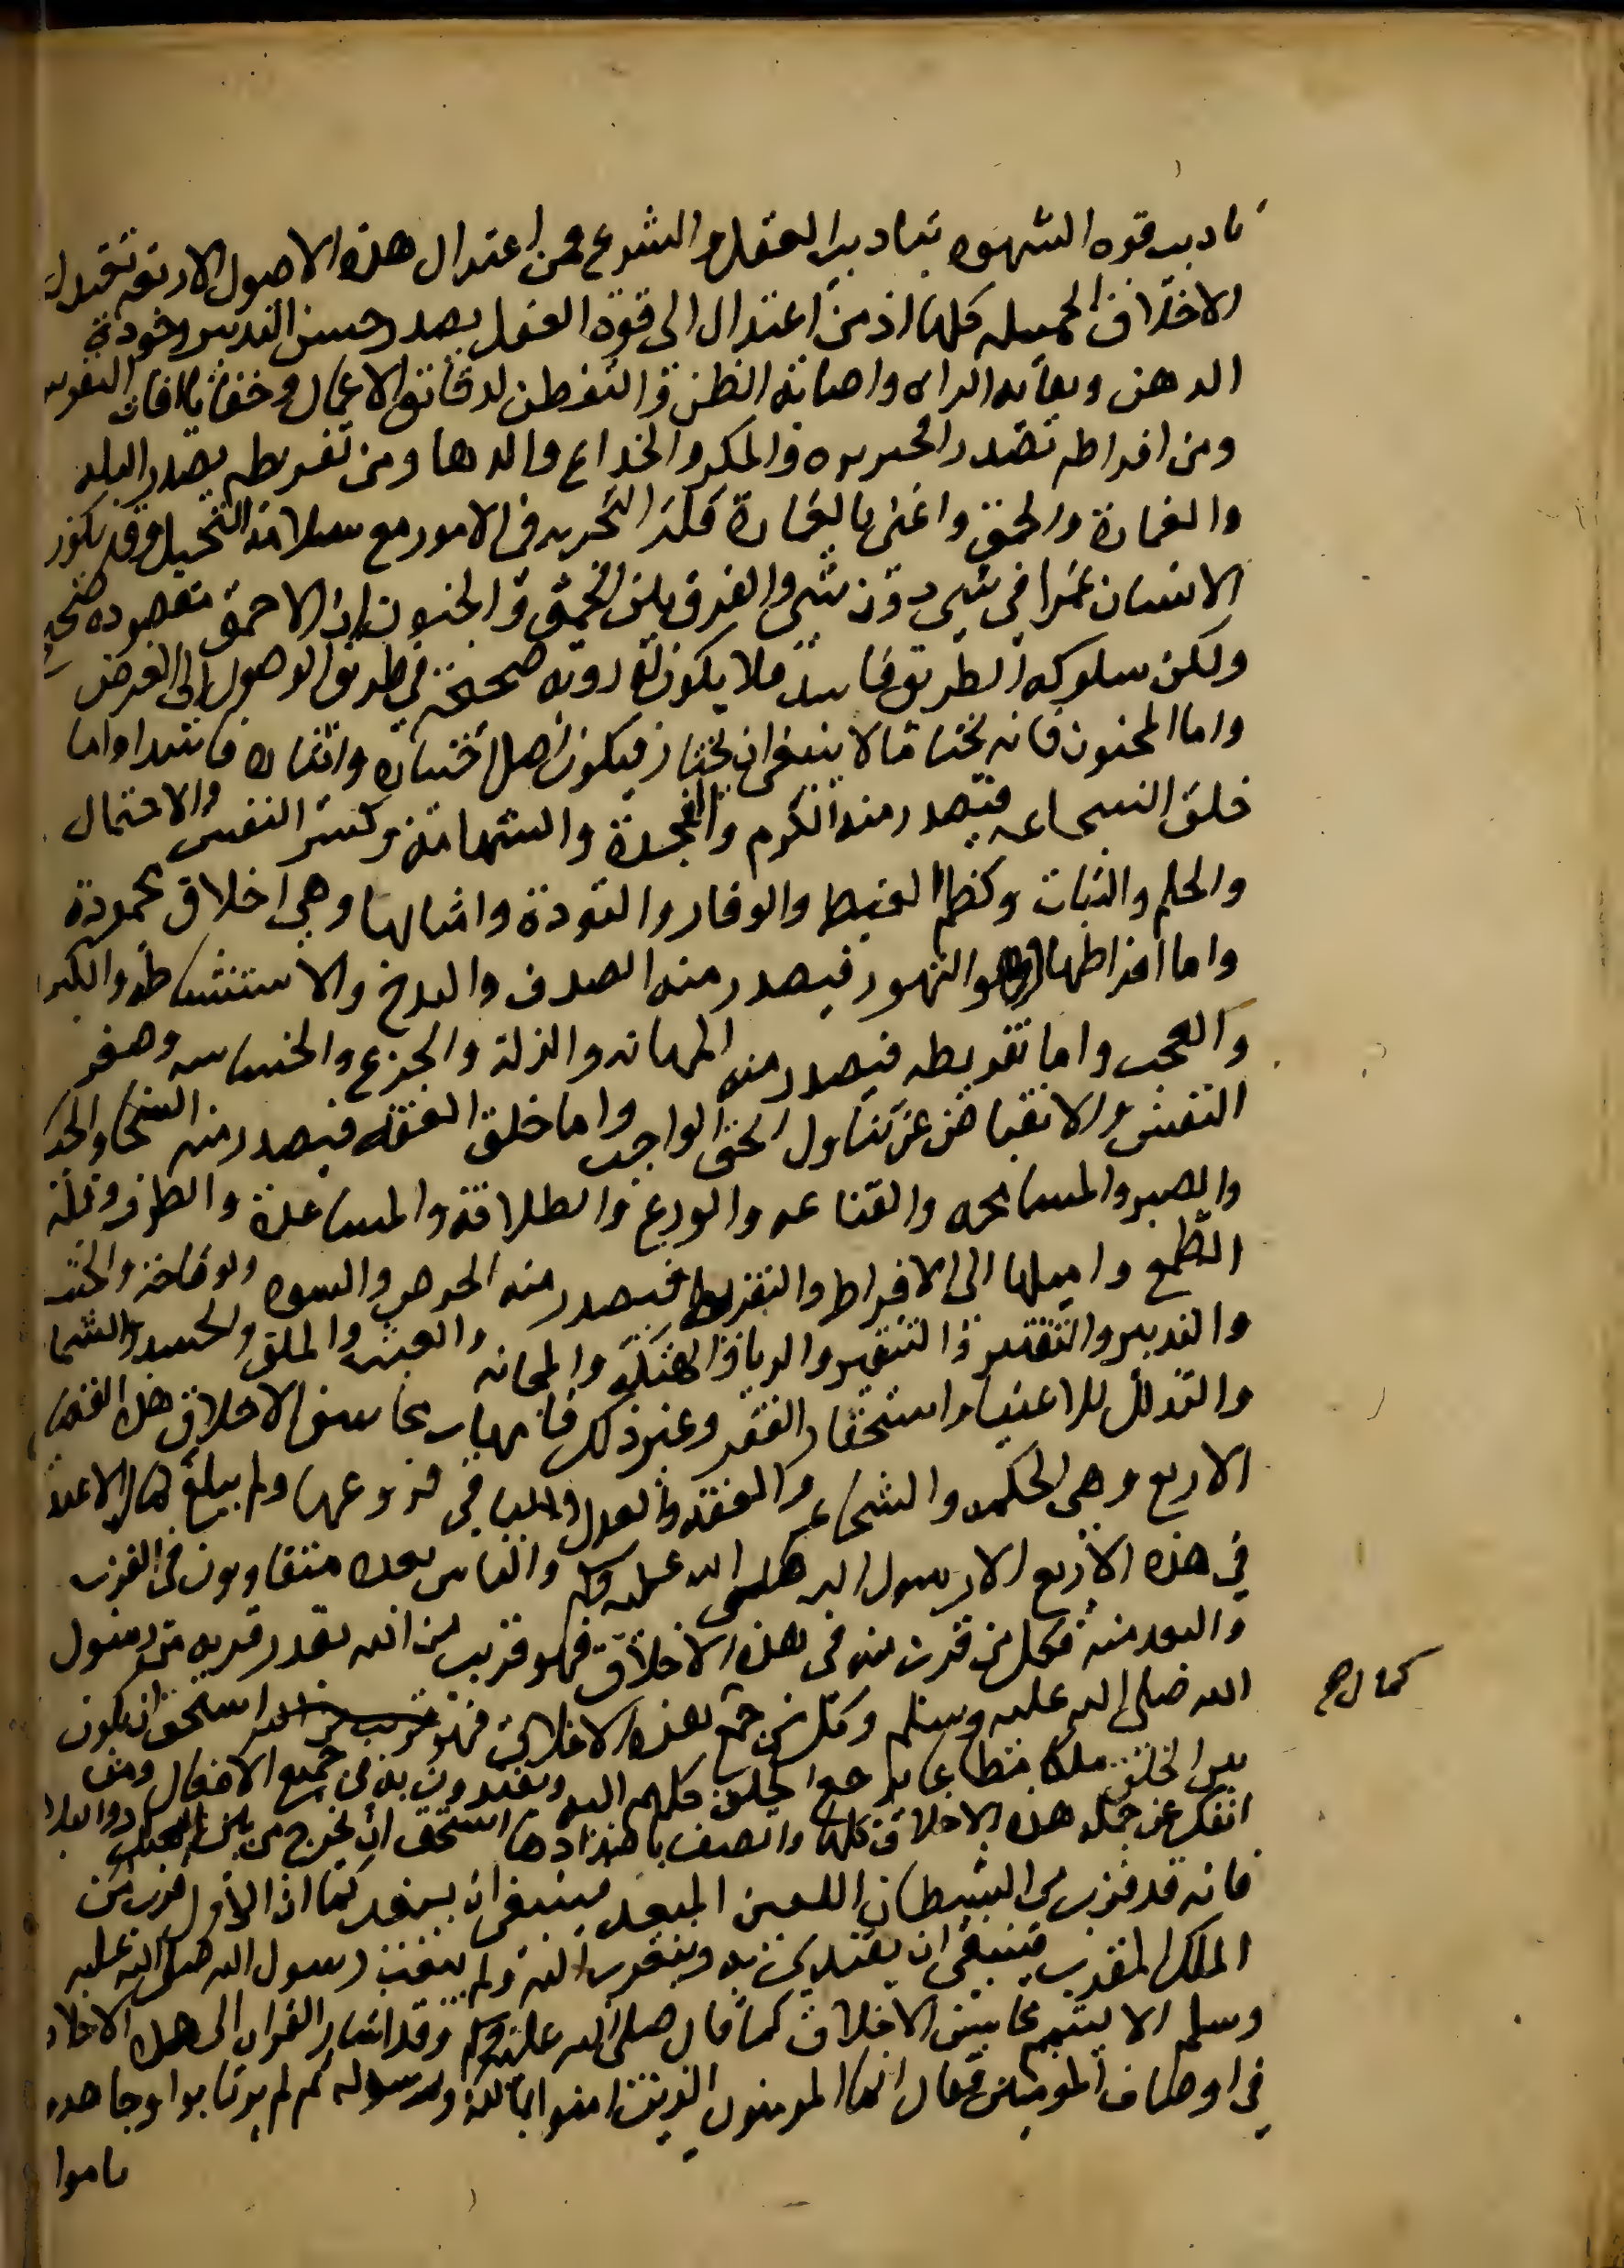 تاديب قوه الشهوه بتاديب العقل والشرع فمن اعتدال هذه الاصول الاربعة تصدر
الاخلاق الجميله كلها اذ من اعتدال الى قوة العقل يصدر حسن التدبير وجودة
الدهن وبقايه الراى واصابة الظن والتفطن لدقائق الاعمال وخفايا افات النفوس
ومن افراطه تصدر الجربره والمكر والخداع والدها ومن تفريطه يصدر البله
والغمارة والحمق واعنى بالغمارة قلة التجربه فى الامور مع سلامة التخيل وقد يكون
الانسان غمرا فى شى دون شى والفرق بين الحمق والجنون ان الاحمق مقصوده صحيح
ولكن سلوكه الطريق فاسد فلا يكون له رويه صحيحة فى طريق الوصول الى الغرض
واما المجنون فانه يختار ما لا ينبغى ان يختار فيكون اصل اختياره وايثاره فاسدا واما
خلق الشجاعه فيصدر منه الكرم والنجدة والشهامة وكسر النفس والاحتمال
والحلم والثبات وكظم الغيظ والوقار والتودة وامثالها وهى اخلاق محمودة
واما افراطها وهو التهور فيصدر منه الصلف والبدخ والاستشاطه والكبر
والعجب واما تفريطه فيصدر منه المهانه والذلة والجزع والخساسه وصغر
النفس والانقباض عن تناول الحق الواجب واما خلق العفه فيصدر منه السخا والحيا
والصبر والمسامحه والقناعه والورع والطلاقة والمساعدة والظرف وقلة
الطمع واميلها الى الافراط والتفريط فيصدر منه الحرص والشره والوقاحة والخبث
والتبدير والتقتير والريا والهتكة والمجانه والعبث والملق والحسد والشما
والتدلل للاغنيا واستحقار الفقر وغير ذلك فامهات محاسن الاخلاق هذه الفضايل
الاربع وهى الحكمه والشجاعه والعفه والعدل والباقى فروعها ولم يبلغ كمال الاعتد
فى هذه الاربع الا رسول الله صلى الله عليه وسلم والناس بعده متفاوتون فى القرب
والبعد منه فكل من قرب منه فى هذه الاخلاق فهو قريب من الله بقدر قربه من رسول
الله صلى الله عليه وسلم وكل من جمع كمال هذه الاخلاق استحق ان يكون
بين الخلق ملكا مطاعا يرجع الخلق كلهم اليه ويقتدون به فى جميع الافعال ومن
انفك عن جمله هذه الاخلاق كلها واتصف باضدادها استحق ان يخرج من بين العباد والبلاد
فانه قد قرب من الشيطان اللعين المبعد فينبغى ان يبعد كما ان الاول قرب من
الملك المقرب فينبغى ان يقتدى به ويتقرب اليه ولم يبعث رسول الله صلى الله عليه
وسلم الا ليتمم محاسن الاخلاق كما قال صلى الله عليه وسلم وقد اشار القران الى هذه الاخلاق
فى اوصاف المومنين فقال انما المومنون الذين امنوا بالله ورسوله ثم لم يرتابوا وجاهدو
باموا